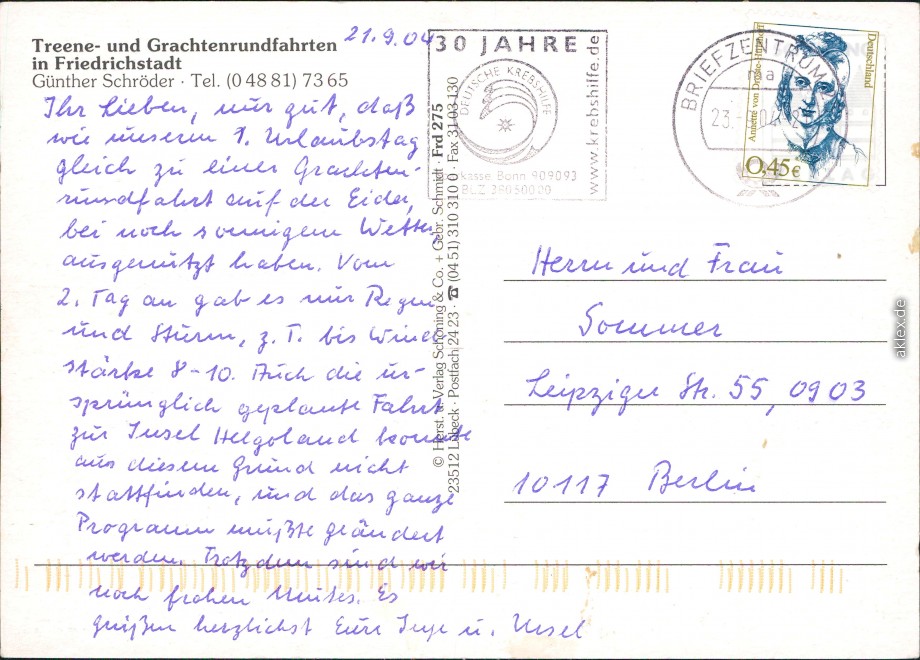 Treene- und Grachtenrundfahrten
in Friedrichstadt
Günther Schröder · Tel. (0 48 81) 73 65
21.9.04
Ihr Lieben, nur gut, daß
wir unseren 1. Urlaubstag
gleich zu einer Grachten-
rundfahrt auf der Eider,
bei noch sonnigem Wetter
ausgenützt haben. Vom
2. Tag an gab es nur Regen
und Sturm, z. T. bis Wind
stärke 8-10. Auch die ur-
sprünglich geplante Fahrt
zur Insel Helgoland konnte
aus diesem Grund nicht
stattfinden, und das ganze
Programm mußte geändert
werden. Trotzdem sind wir
noch frohen Mutes. Es
grüßen herzlichst Eure Inge u. Ursel
© Herst. u. Verlag Schöning & Co. + Gebr. Schmidt · Frd 275
23512 Lübeck · Postfach 24 23 · ☎ (04 51) 310 310 0 · Fax 31 03 130
30 JAHRE
DEUTSCHE KREBSHILFE
kasse Bonn 909093
BLZ 38050000
www.krebshilfe.de
BRIEFZENTRUM
23.
Annette von Droste-Hülshoff
Deutschland
0,45€
Herrn und Frau
Sommer
Leipziger Str. 55, 0903
10117 Berlin
aklex.de